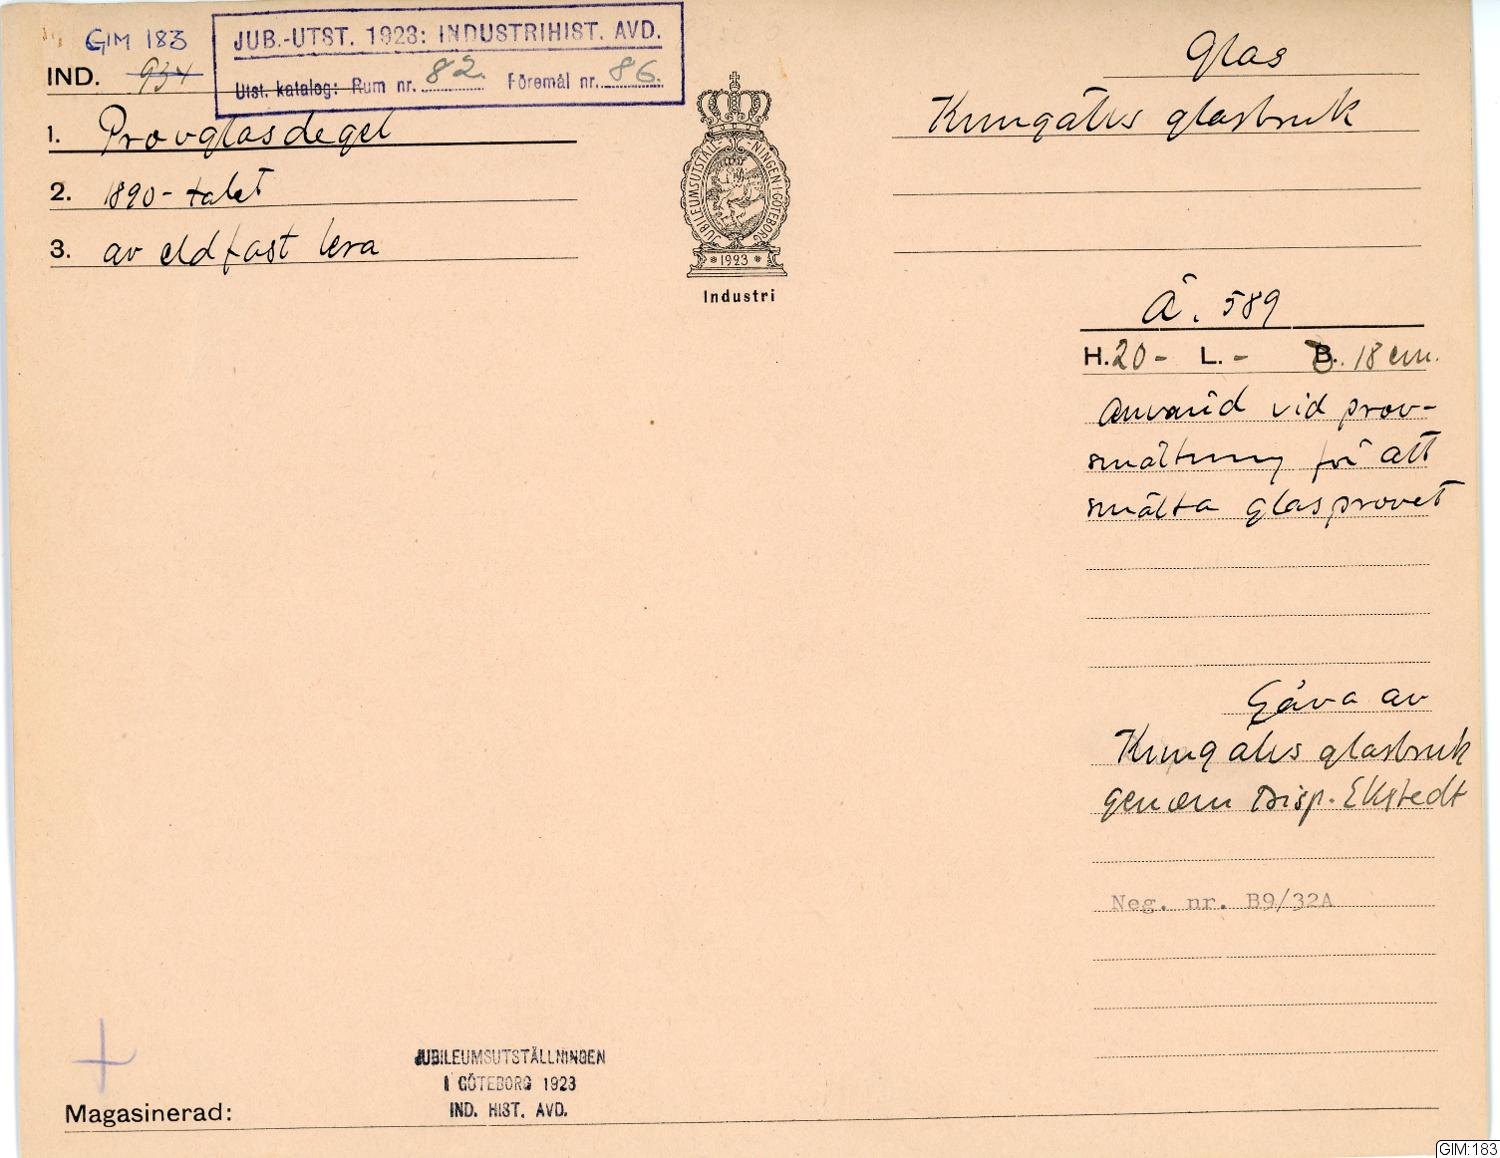 GIM 183
IND. 934
JUB.-UTST. 1923: INDUSTRIHIST. AVD.
Utst. katalog: Rum nr. 82. Föremål nr. 86.
1. Provglasdegel
2. 1890-talet
3. av eldfast lera
JUBILEUMSUTSTÄLLNINGEN I GÖTEBORG
* 1923 *
Industri
Glas
Kungälvs glasbruk
Å. 589
H. 20 - L. - B. 18 cm.
Använd vid prov-
smältning för att
smälta glasprovet
Gåva av
Kungälvs glasbruk
genom Disp. Ekstedt
Neg. nr. B9/32A
JUBILEUMSUTSTÄLLNINGEN
I GÖTEBORG 1923
IND. HIST. AVD.
Magasinerad:
GIM:183